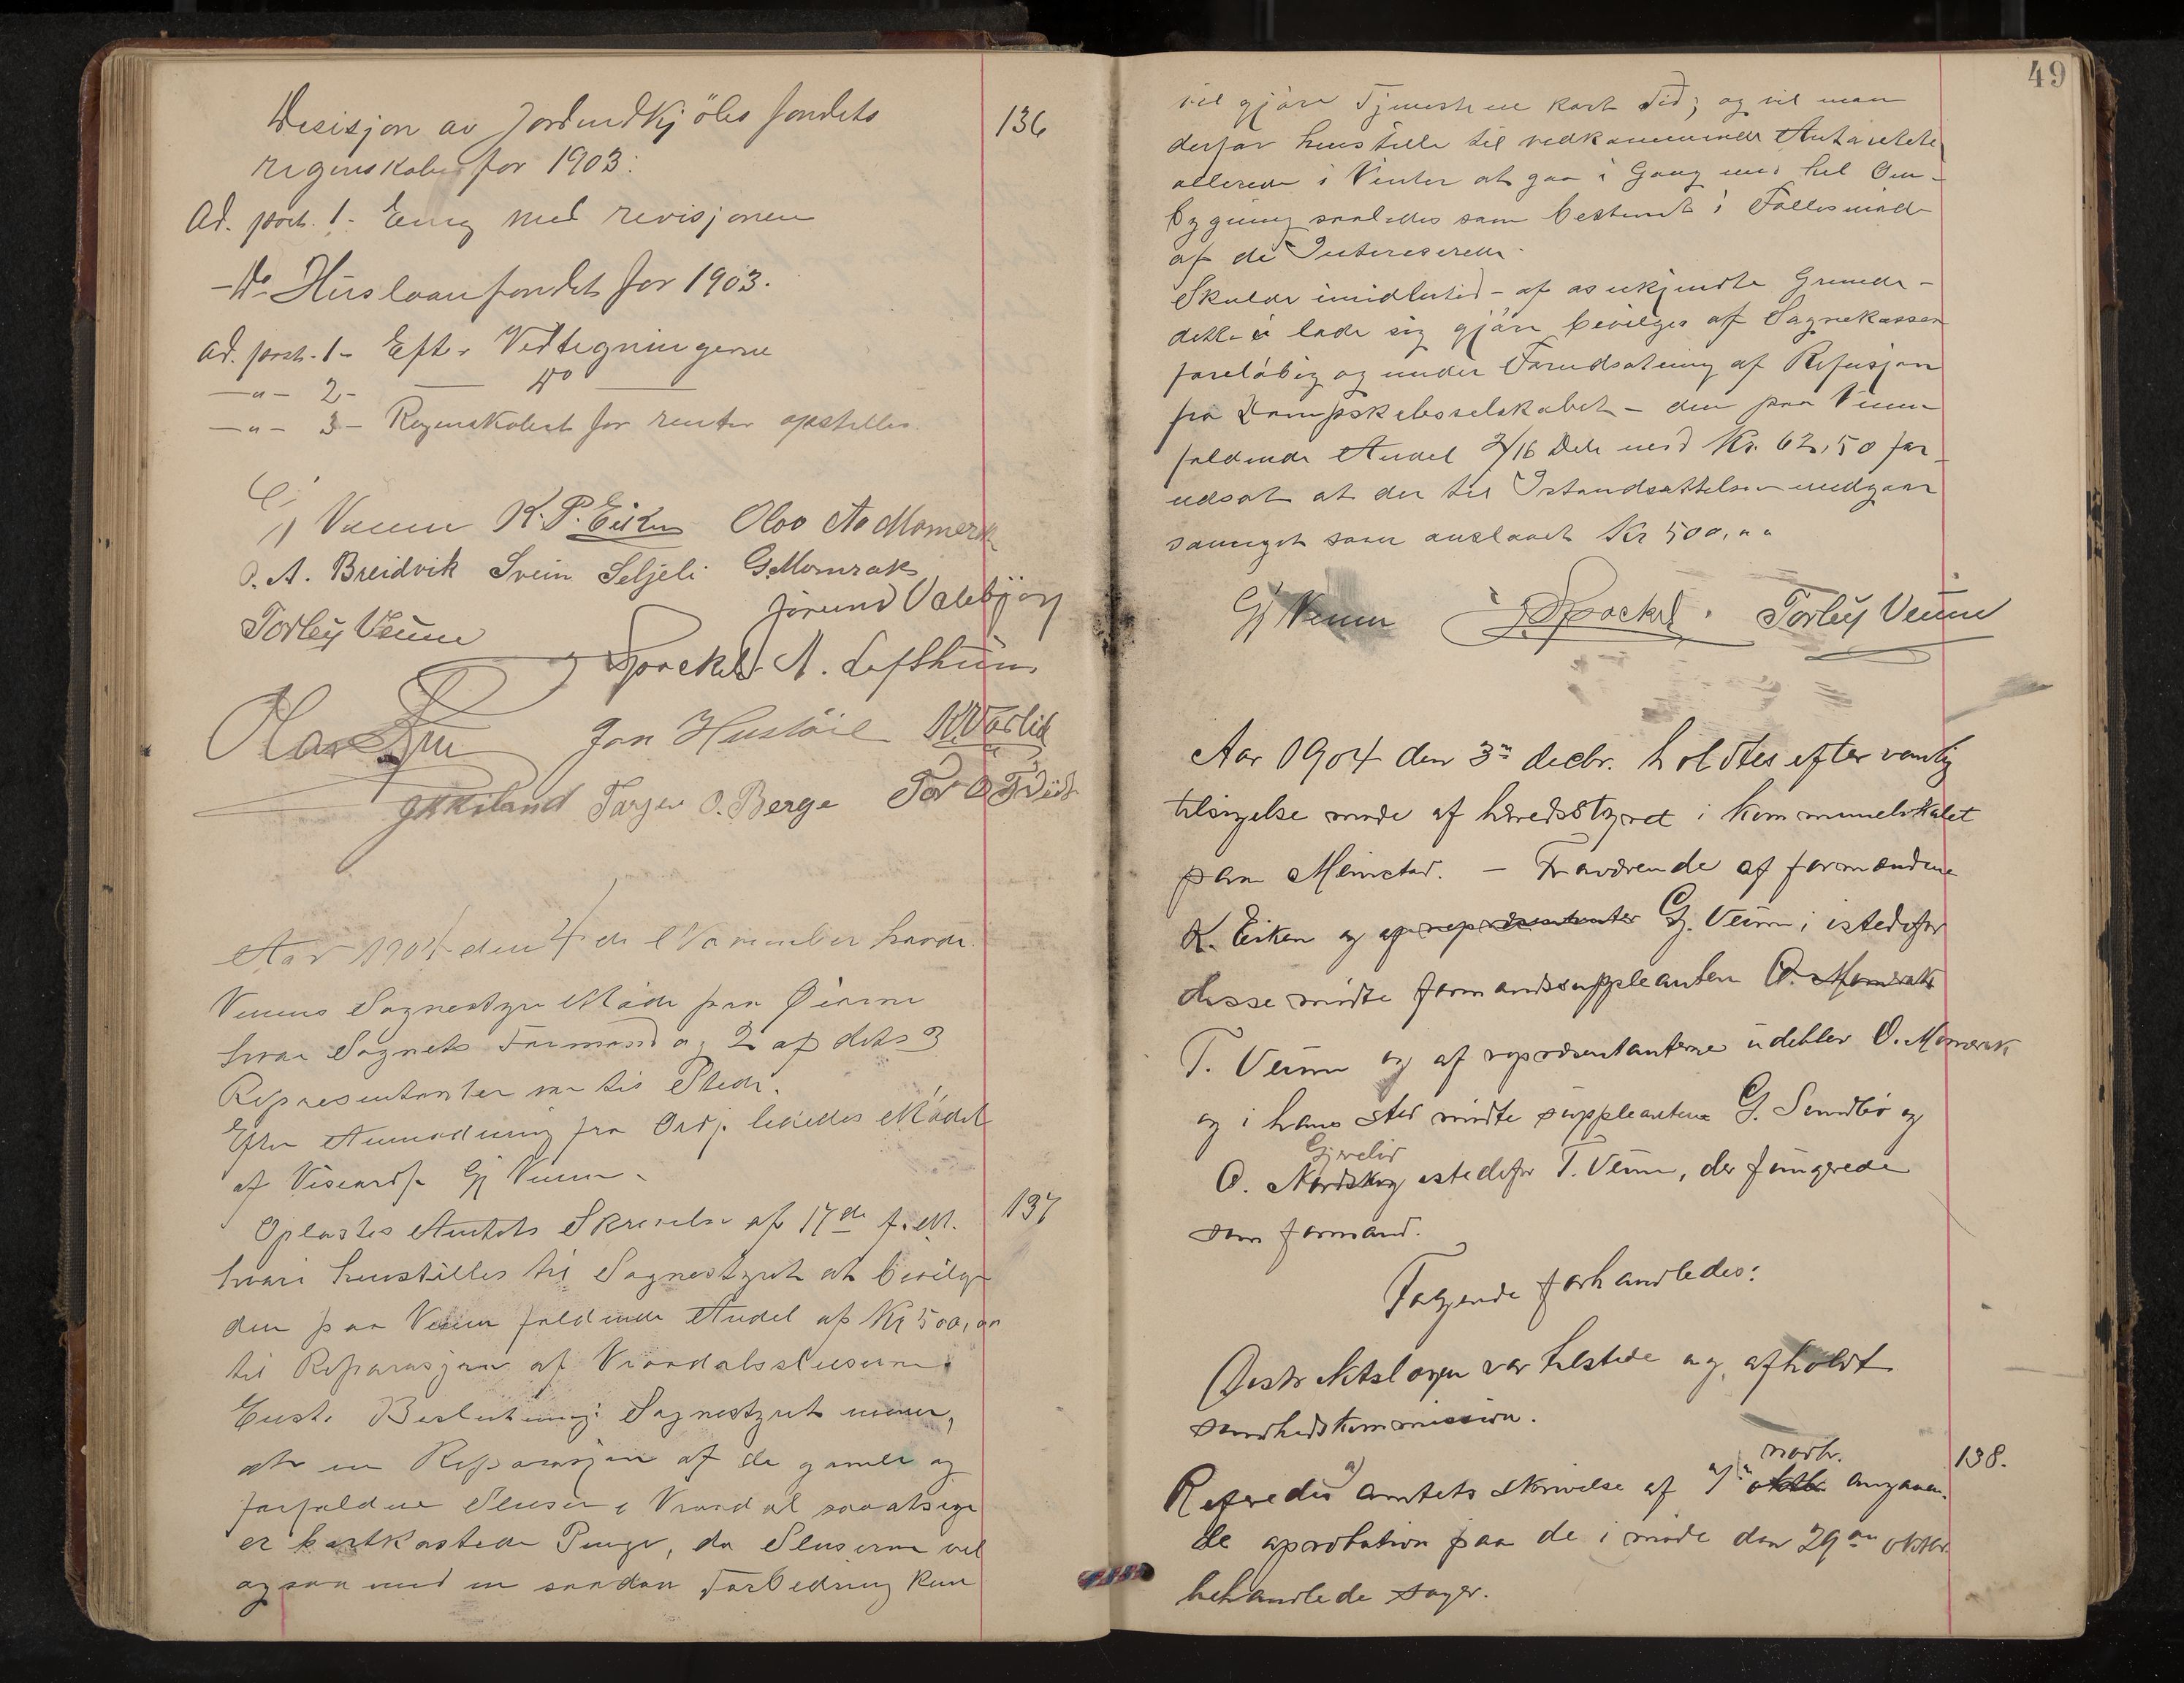 136
Desisjon av Jordindkjöbs fondets
regnskaber for 1903:
Ad. post. 1 - Enig med revisjonen
- Do Huslaanfondet for 1903.
Ad. post. 1 - Efter Vedtegningerne
— „ — 2 - — Do —
— „ — 3 - Regnskabet for renter opstilles
Gj Veum K. P. Eiken Olav Aa Momrak
O. A. Breidvik Svein Seljeli G. Momrak
Torleif Veum Jörund Valebjörg
Spockeli A. Lofthuus
Jon Hustöil
Torger O. Berge Tor O
Aar 1904 den 4de November havde
Veums Sognestyre Möde paa Överum
hvor Sognets Formand og 2 af dets 3
Representanter var til Stede.
Efter Anmodning fra Ordf. lededes Mödet
af Viseordf. Gj Veum -
137
Oplæstes Amtets Skrivelse af 17de f. M.
hvori henstilles til Sognestyret at bevilge
den paa Veum faldende Andel af Kr 500,00
til Reparasjon af Vraadalssluserne.
Enst. Beslutning: Sognestyret mener,
at en Reparasjon af de gamle og
forfaldne Sluser i Vraadal saaatsige
er bortkastede Penge, da Sluserne vel
ogsaa med en saadan Forbedring kun
49
vil gjöre Tjeneste en kort Tid; og vil man
derfor henstille til vedkommende Autoritete
allerede i Vinter at gaa i Gang med hel Om-
bygning saaledes som bestemt i Fællesmöde
af de Intereserede.
Skulde imidlertid - af os ukjendte Grunde -
dette ei lade sig gjöre bevilges af Sognekassen
forelöbig og under Forudsætning af Refusjon
fra Dampskibsselskabet - den paa Veum
faldende Andel 2/16 Dele med Kr. 62,50 for-
udsat at der til Istandsættelsen medgaar
saameget som anslaaet Kr 500,00
Gj Veum Spockeli . Torleif Veum
Aar 1904 den 3die decbr. holdtes efter vanlig
tilsigelse möde af heredsstyret i kommunelokalet
paa Moinstad. - Fraværende af formændene
K. Eiken og af repræsentanter Gj. Veum; istedefor
disse mödte formandssuppleanten O. Momrak
T. Veum og af repræsentanterne udeblev O. Momrak
og i hans sted mödte suppleantene G. Sundbö og
Gjervelir
O. Nordskog istedefor T. Veum, der fungerede
som formand.
Fölgende forhandledes:
Distriktslægen var tilstede og afholdt
sundhedskommission.
138.
novbr.
Referedes a) amtets skrivelse af oktbr angaaen-
de aprobation paa de i möde den 29de oktbr.
behandlede sager.